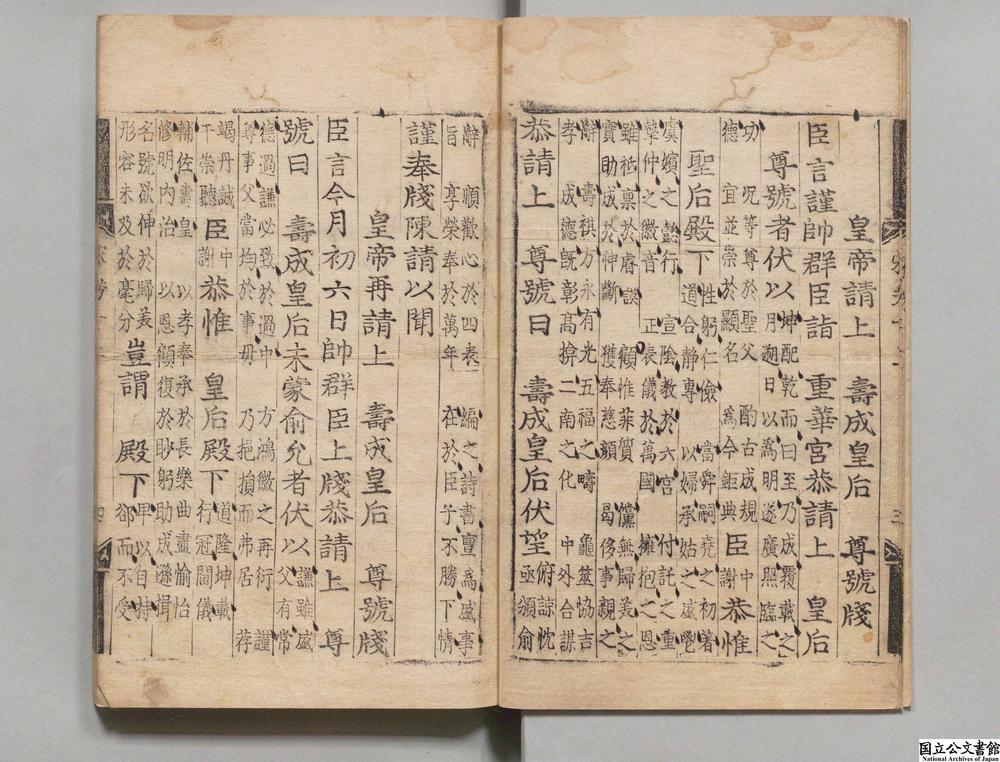 皇帝請上 壽成皇后 尊號牋
臣言謹帥群臣詣 重華宮恭請上 皇后
尊號者伏以坤配乾而曰至乃成覆載之
月遡日以為明遂廣照臨之
功 況等尊於聖父 酌古成規
德 宜並崇於顯名 為今鉅典 臣中謝恭惟
聖后殿下性躬仁儉 當舜嗣堯之初著
道合静專 以婦承姑之盛
虞嬪之懿行 宣陰教於六宮 付託之重
摯仲之徽音 正表儀於萬國 擁抱之恩
雖祗稟於睿謨 顧惟菲質 儻無歸美之
實助成於神斷 獲奉慈顏 曷侈事親之
辭 壽祺方永有光五福之疇 龜筮協吉
孝 成德既彰髙揜二南之化 中外合謀
恭請上 尊號曰 壽成皇后伏望俯諒忱
亟頒俞
三
辭 順歡心於四表 編之詩書亶為盛事
旨 享榮奉於萬年 在於臣子不勝下情
謹奉牋陳請以聞
皇帝再請上 壽成皇后 尊號牋
臣言今月初六日帥群臣上牋恭請上 尊
號曰 壽成皇后未蒙俞允者伏以謙雖盛
父有常
德過謙必致於過中 方鴻徽之再衍 謹
尊事父當均於事母 乃挹損而弗居 荐
竭丹誠
干崇聽臣中謝恭惟 皇后殿下道隆坤載
行冠閫儀
輔佐壽皇 以孝奉承於長樂曲盡愉怡
修明内治 以恩顧復於眇躬助成遜揖
名號欲伸於歸美
形容未及於毫分豈謂 殿下卑以自持
郤而不受
四
国立公文書館
National Archives of Japan